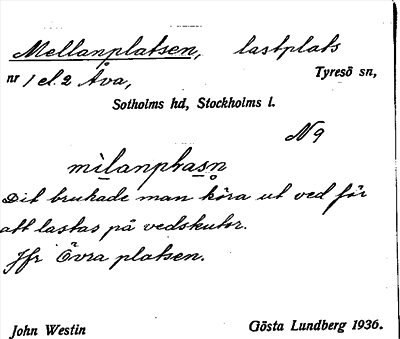 Mellanplatsen, lastplats
nr 1 el. 2 Åva, Tyresö sn,
Sotholms hd, Stockholms l.
N 9
milanplasn
Dit brukade man köra ut ved för
att lastas på vedskutor.
Jfr Övra platsen.
John Westin Gösta Lundberg 1936.